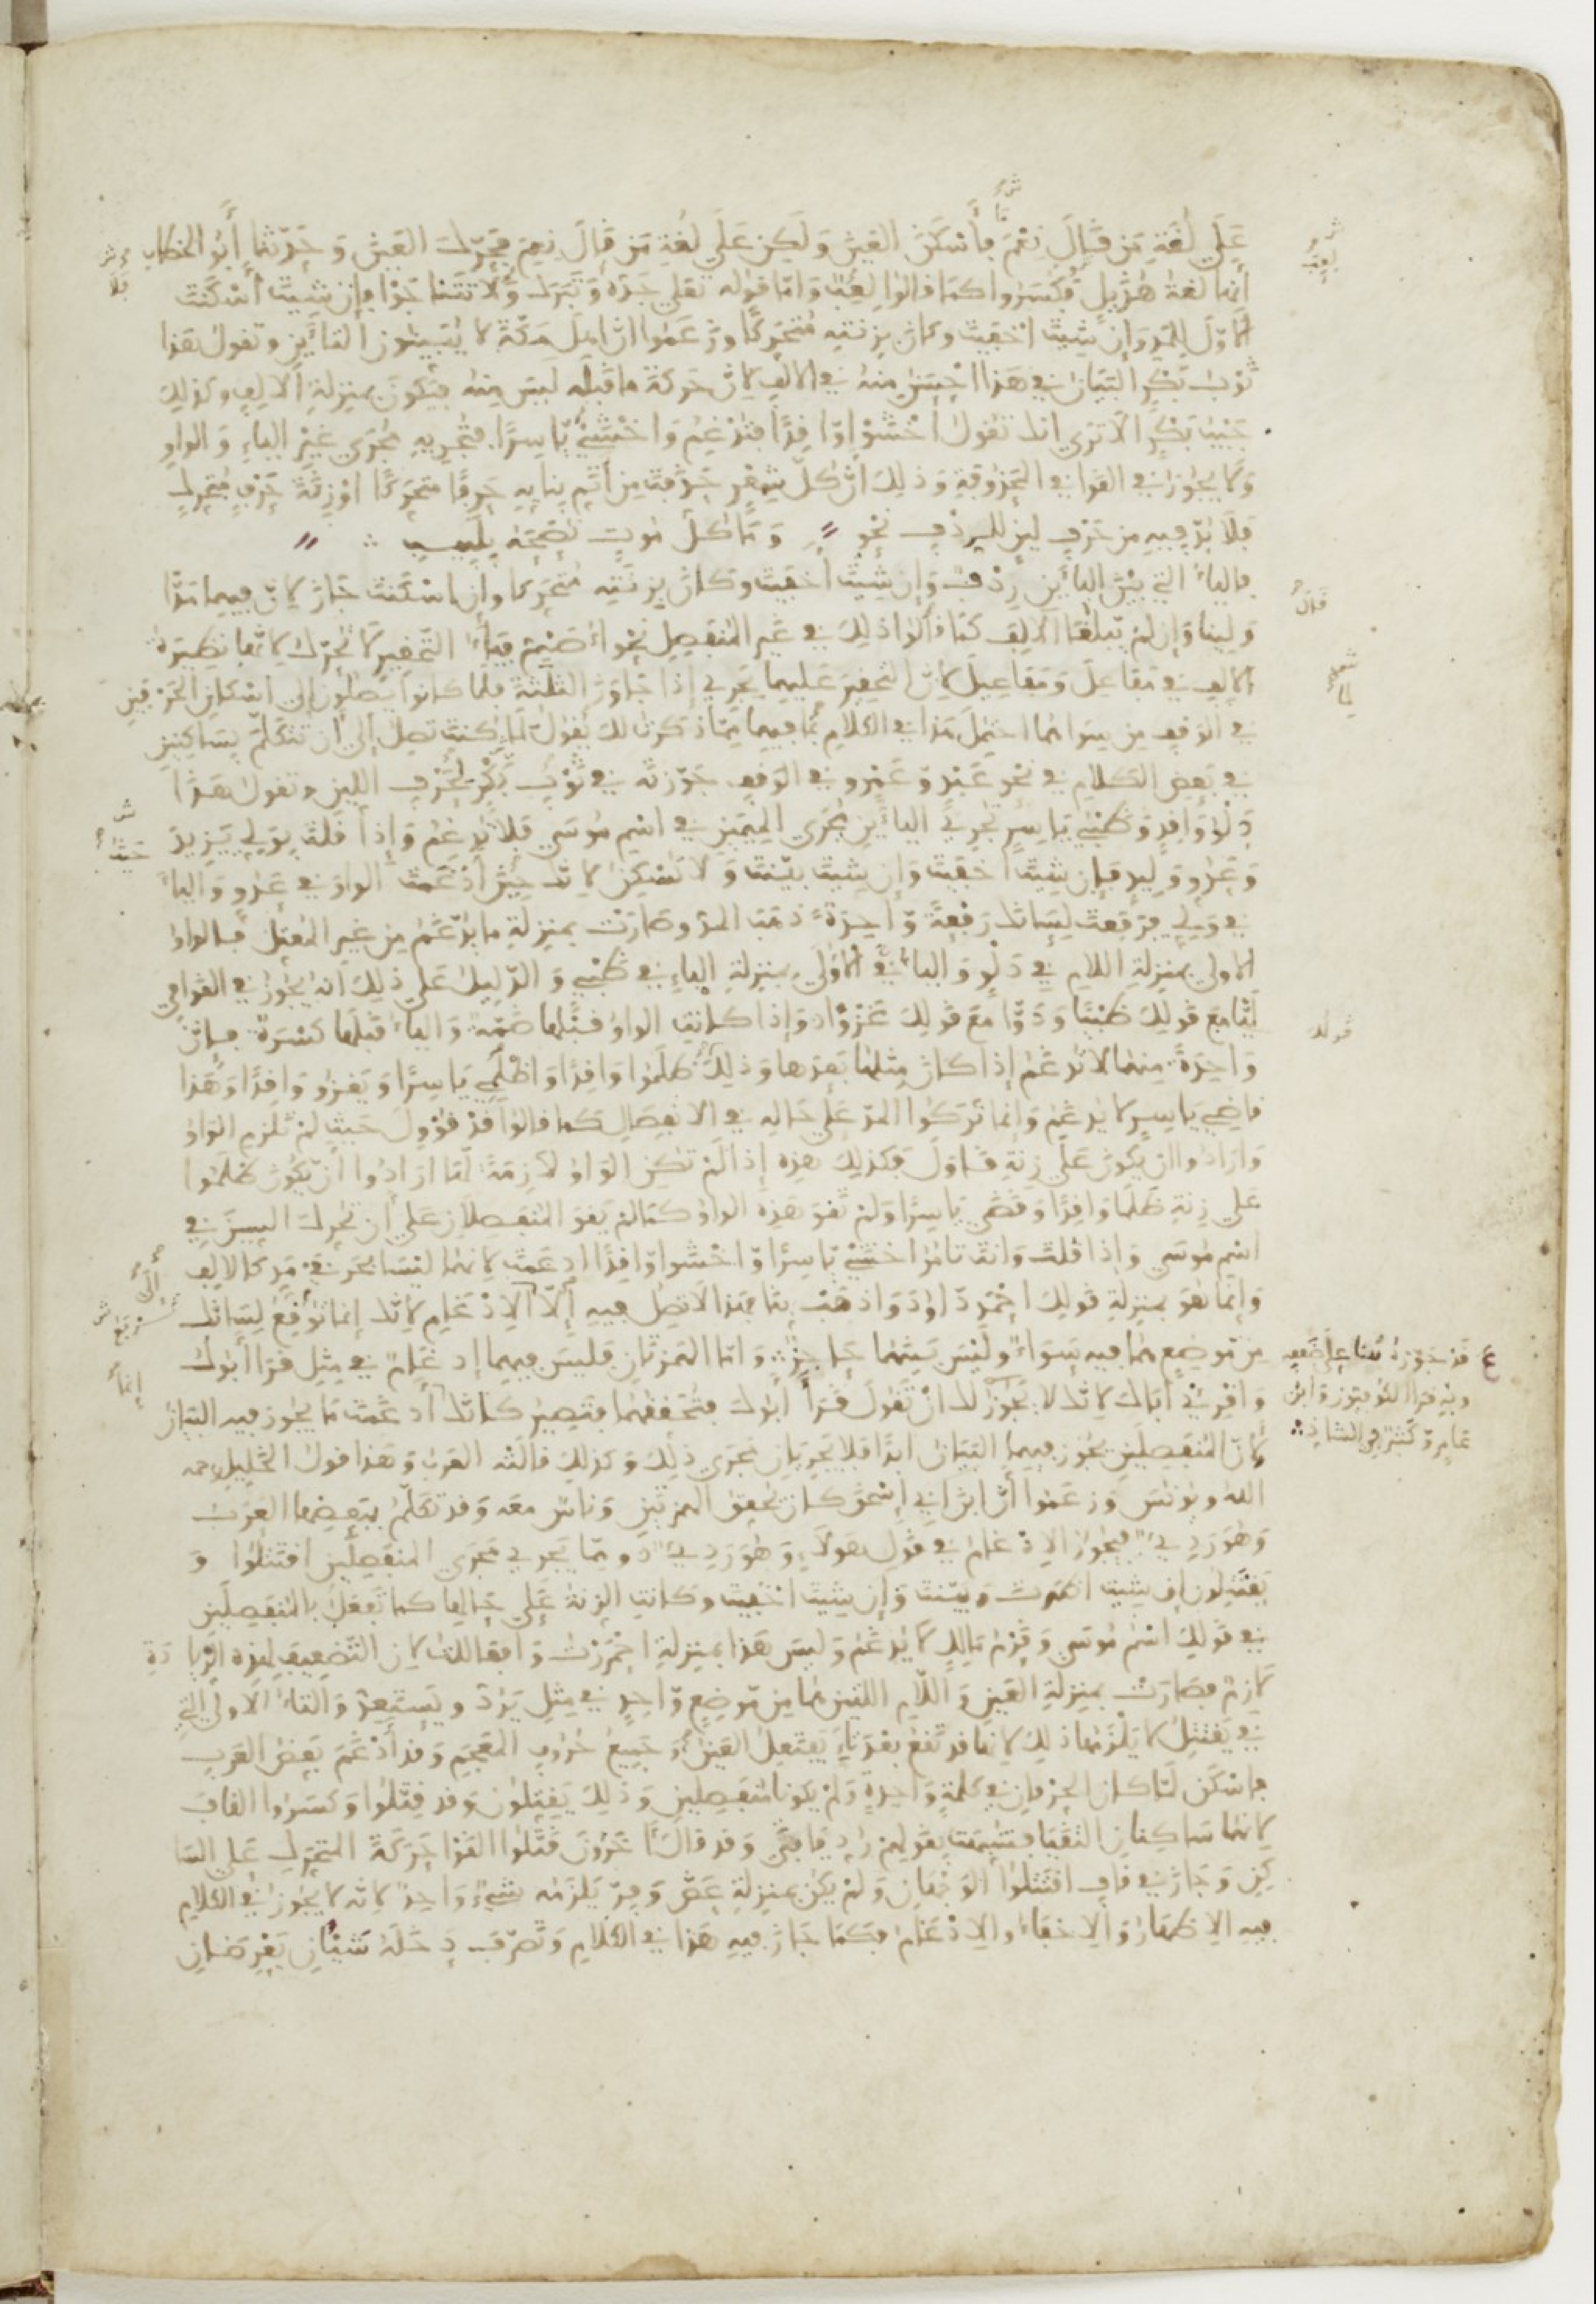 على لغة من قال نعم فأسكن العين ولكن على لغة من قال نعم فحرك العين وحدثنا أبو الخطاب
أنها لغة هذيل فكسروا كما قالوا لعب وأما قوله تعلى جده وتبرك ولا تتناجوا فإن شيت أسكنت
الأول للمد وإن شيت اخفيت وكان بزنته متحركا وزعموا ان اهل مكة لا يبينون التاءين وتقول هذا
ثوب بكر البيان في هذا احسن منه في الالف لان حركة ما قبله ليس منه فيكون بمنزلة الالف وكذلك
جيب بكر الا ترى انك تقول اخشوا واقدا فتدغم واخشي ياسرا فتجريه مجرى غير الياء والواو
ولا يجوز في القوافي المحذوفة وذلك أن كل شعر حذفت من أتم بنايه حرفا متحركا او زنة حرف متحرك
فلا بد فيه من حرف لين للردف نحو وما كل موت نصحه بلبيب
فالياء التي بين الباءين ردف وإن شيت أخفيت وكان بزنته متحركا وإن اسكنت جاز لان فيهما مدا
ولينا وإن لم يبلغا الالف كما قالوا ذلك في غير المنفصل نحو أصيم فياء التحقير لا تحرك لانها نظيرة
الالف في مفاعل ومفاعيل لان التحقير عليهما يجري إذا جاوز الثلثة فلما كانوا يصلون إلى اسكان الحرفين
في الوقف من سواهما احتمل هذا في الكلام لما فيهما مما ذكرت لك
في بعض الكلام في نحو عبد وعمرو في الوقف جوزته في ثوب بكر لحرف اللين وتقول هذا
دلو واقد وظبي ياسر فتجري الياءين مجرى الميمين في اسم موسى فلا تدغم وإذا قلت بولي يزيد
وعدو وليد فإن شيت أخفيت وإن شيت بينت ولا تسكن لانك حين أدغمت الواو في عدو والياء
في ولي فرفعت لسانك رفعة واحدة ذهب المد وصارت بمنزلة ما يدغم من غير المعتل فالواو
الاولى بمنزلة اللام في دلو والياء الأولى بمنزلة الياء في ظبي والدليل على ذلك انه يجوز في القوافي
ليا مع قولك ظبيا ودوا مع قولك غزوا وإذا كانت الواو قبلها ضمة والياء قبلها كسرة فإن
واحدة منهما لا تدغم إذا كان مثلها بعدها وذلك ظلموا واقدا واظلمي ياسرا ويغزو واقدا وهذا
قاضي ياسر لا يدغم وإنما تركوا المد على حاله في الانفصال كما قالوا قد قوول حيث لم تلزم الواو
وارادوا ان يكون على زنة قاول فكذلك هذه إذا لم تكن الواو لازمة لما ارادوا أن يكون ظلموا
على زنة ظلما واقدا وقضى ياسرا ولم تقو هذه الواو كما لم يقو المنفصلان على أن تحرك السين في
اسم موسى وإذا قلت وانت تامر اخشي ياسرا واخشوا واقدا ادغمت لانهما ليسا بحرفي مد كالالف
وإنما هو بمنزلة قولك احمد داود واذهب بنا فهذا لا تصل فيه إلا الادغام لانك إنما ترفع لسانك
من موضع هما فيه سواء وليس بينهما حاجز وأما الهمزتان فليس فيهما إدغام في مثل قرأ أبوك
وأقرئ أباك لانك لا يجوز لك ان تقول قرأ أبوك فتحققهما فتصير كأنك أدغمت ما يجوز فيه البيان
لان المنفصلين يجوز فيهما البيان ابدا فلا يجريان مجرى ذلك وكذلك قالته العرب وهذا قول الخليل رحمه
الله ويونس وزعموا أن ابن أبي إسحق كان يحقق الهمزتين وناس معه وقد تكلم ببعضها العرب
وهو ردي فيجوز الادغام في قول هولاء وهو ردي ومما يجري مجرى المنفصلين اقتتلوا و
يقتتلون إن شيت اظهرت وبينت وإن شيت اخفيت وكانت الزنة على حالها كما تفعل بالمنفصلين
في قولك اسم موسى وقوم مالك لا يدغم وليس هذا بمنزلة احمررت وافعاللت لان التضعيف لهذه الزيادة
لازم فصارت بمنزلة العين واللام اللتين هما من موضع واحد في مثل يرد ويستعد والتاء الاولى التي
في يقتتل لا يلزمها ذلك لانها قد تقع بعد تاء يفتعل العين وجميع حروف المعجم وقد أدغم بعض العرب
فاسكن لما كان الحرفان في كلمة واحدة ولم يكونا منفصلين وذلك يقتلون وقد قتلوا وكسروا القاف
لانهما ساكنان التقيا فشبهت بقولهم رد يا فتى وقد قال آخرون قتلوا القوا حركة المتحرك على السا
كن وجاز في قاف اقتتلوا الوجهان ولم يكن بمنزلة عض وفر يلزمه شيء واحد لانه لا يجوز في الكلام
فيه الاظهار والاخفاء والادغام فكما جاز فيه هذا في الكلام وتصرف دخله شيئان يعرضان
ع قد جوزه هنا على ضعفه
وبه قرأ الكوفيون وابن
عامر وكثر في الشاذ